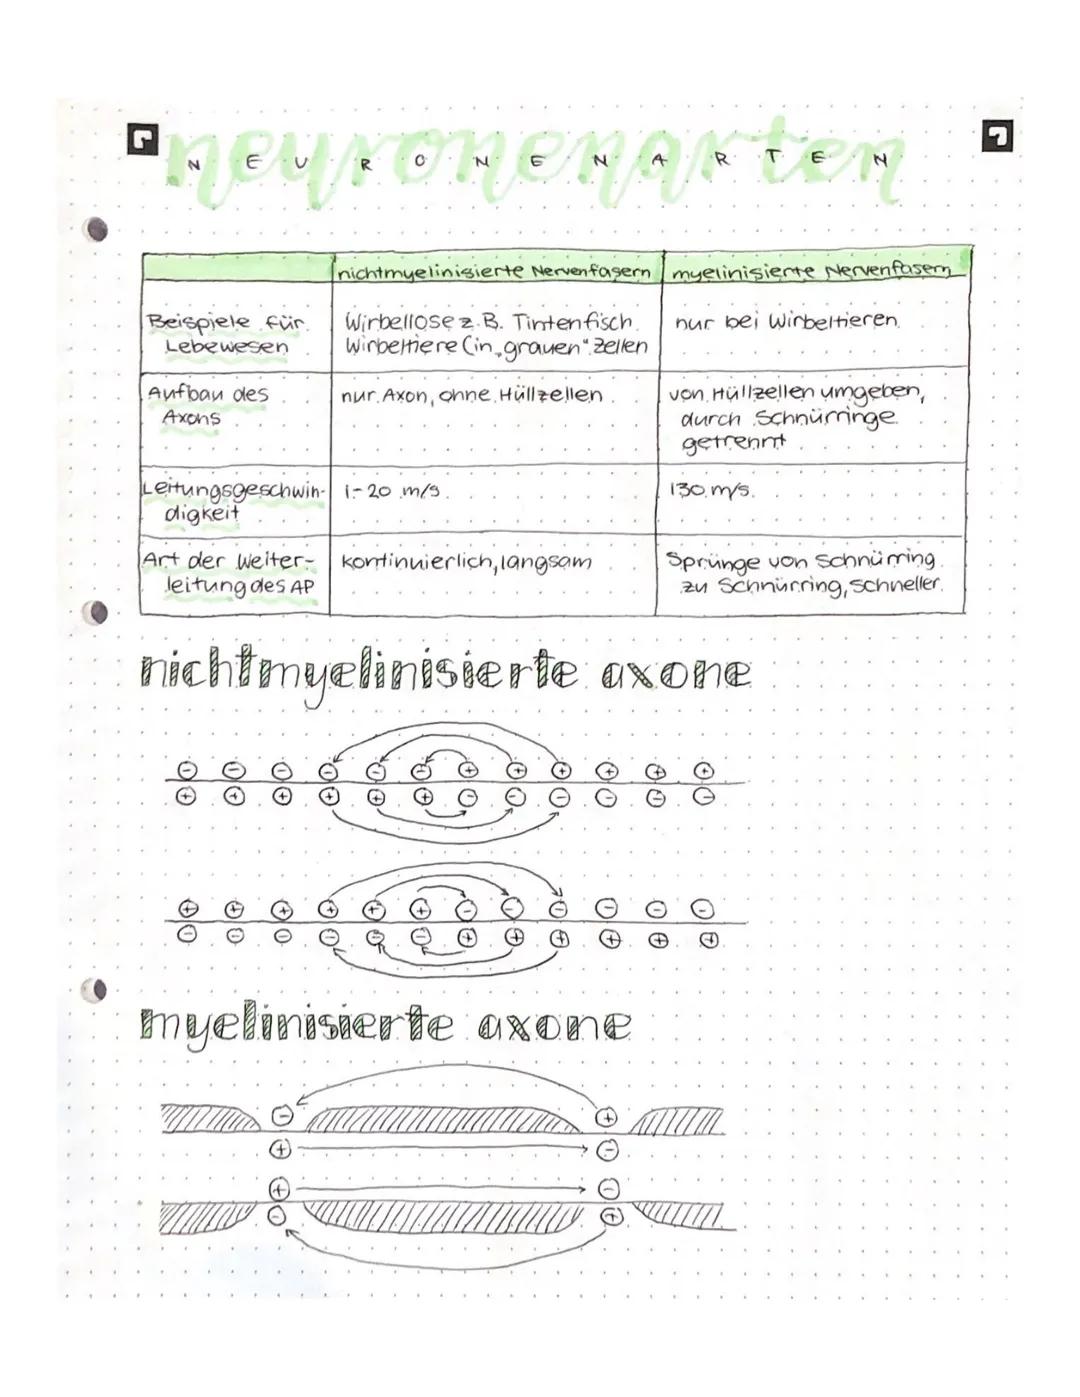 neuronenarten
NEURONENARTEN
nichtmyelinisierte Nervenfasern
myelinisierte Nervenfasern
Beispiele für
Lebewesen
Wirbellose z.B. Tintenfisch
Wirbeltiere (in „grauen" Zellen
nur bei Wirbeltieren
Aufbau des
Axons
nur Axon, ohne Hüllzellen
von Hüllzellen umgeben,
durch Schnürringe
getrennt
Leitungsgeschwin-
digkeit
1-20 m/s
130 m/s
Art der Weiter-
leitung des AP
kontinuierlich, langsam
Sprünge von Schnürring
zu Schnürring, schneller
nichtmyelinisierte axone
⊖ ⊖ ⊖ ⊖ ⊖ ⊖ ⊕ ⊕ ⊕ ⊕ ⊕ ⊕
⊕ ⊕ ⊕ ⊕ ⊕ ⊕ ⊖ ⊖ ⊖ ⊖ ⊖ ⊖
⊕ ⊕ ⊕ ⊕ ⊕ ⊕ ⊖ ⊖ ⊖ ⊖ ⊖ ⊖
⊖ ⊖ ⊖ ⊖ ⊖ ⊖ ⊕ ⊕ ⊕ ⊕ ⊕ ⊕
myelinisierte axone
⊖ ⊕
⊕ ⊖
⊕ ⊖
⊖ ⊕